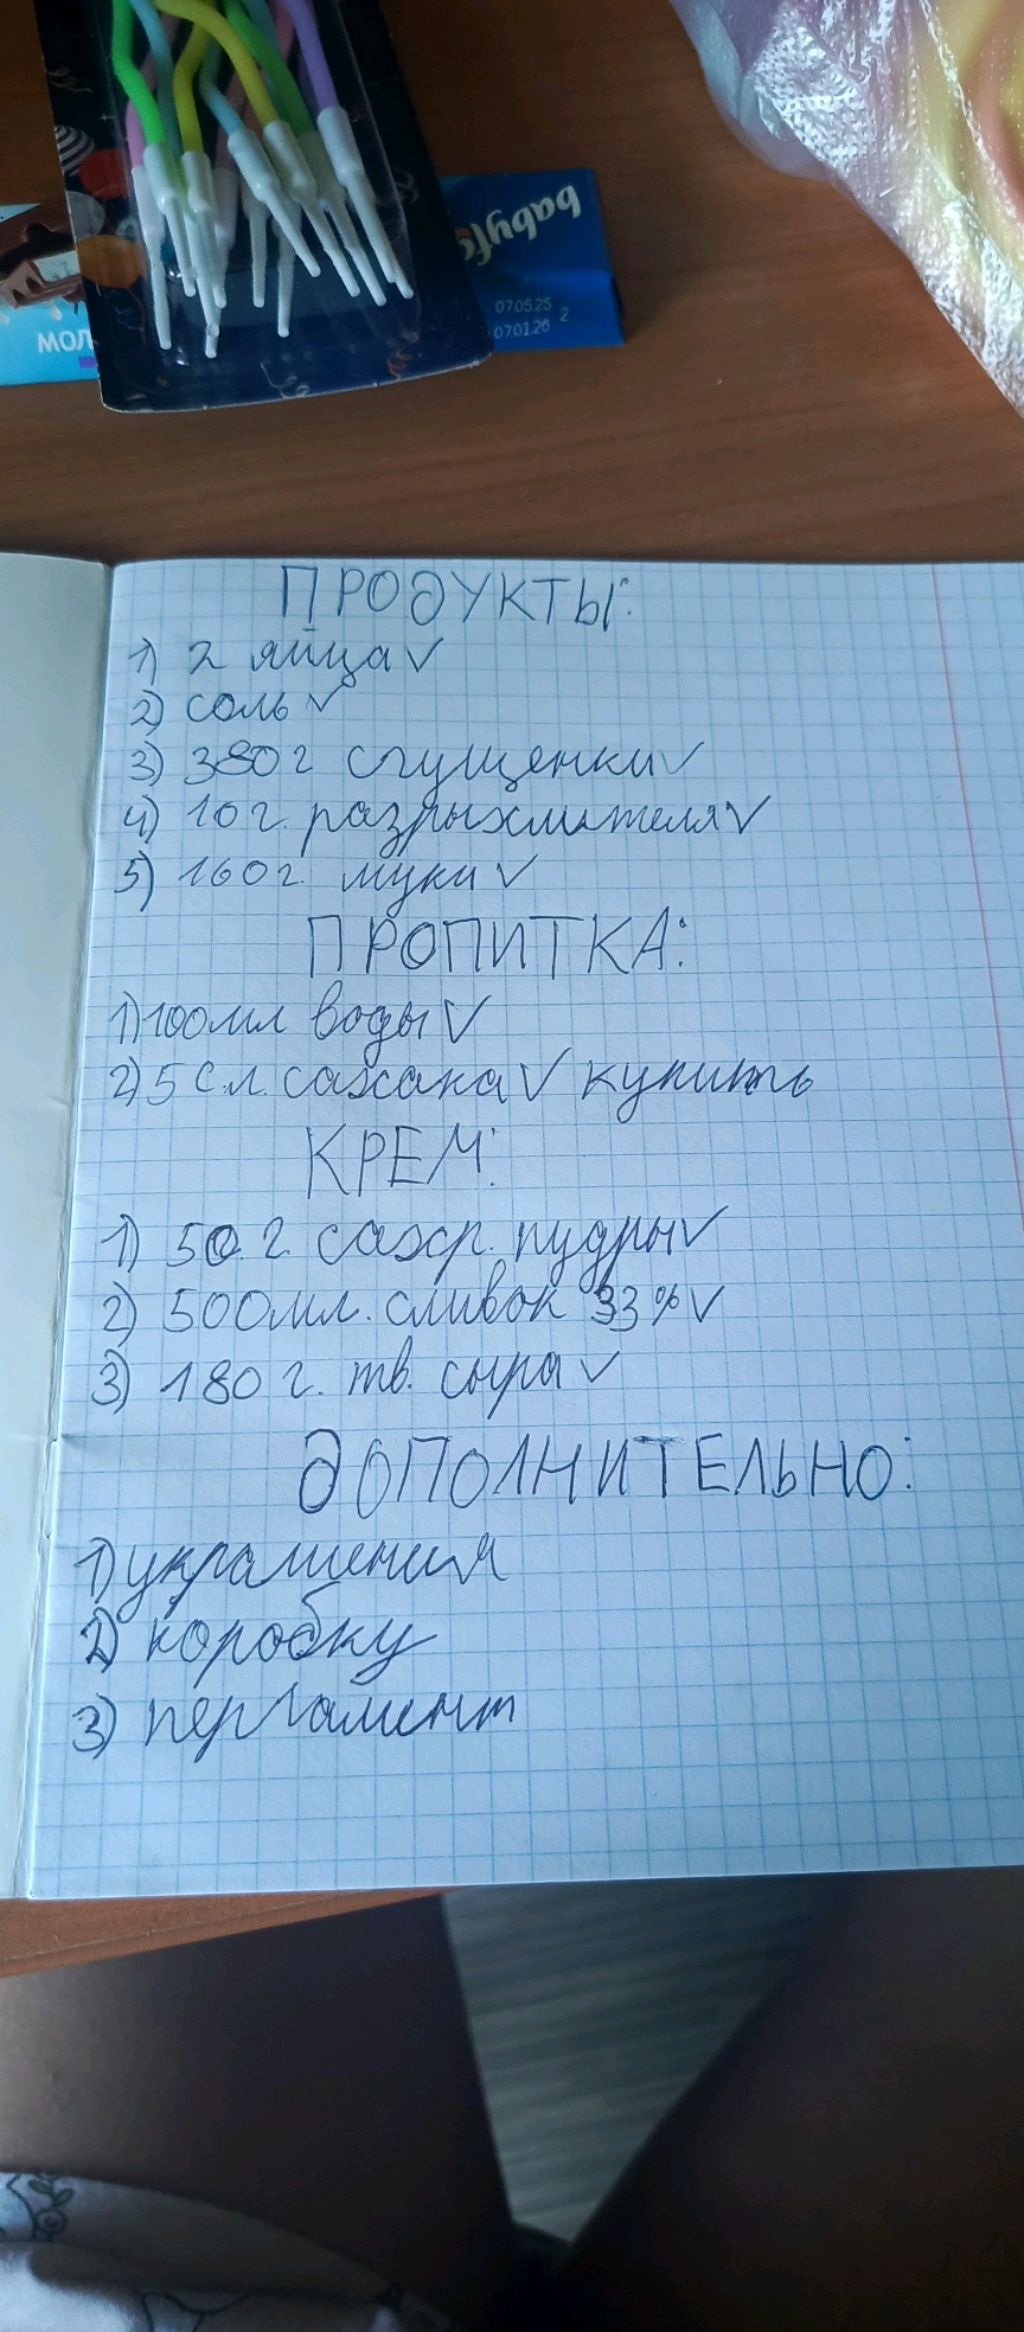 babyfo
07.05.25
07.01.26 2
МОЛ
ПРОДУКТЫ:
1) 2 яйца ✓
2) соль ✓
3) 380 г сгущенки ✓
4) 10 г. разрыхлителя ✓
5) 160 г. муки ✓
ПРОПИТКА:
1) 100 мл воды ✓
2) 5 с.л. сахака ✓ купить
КРЕМ:
1) 50. г. сахр. пудры ✓
2) 500 мл. сливок 33% ✓
3) 180 г. тв. сыра ✓
ДОПОЛНИТЕЛЬНО:
1) украшения
2) коробку
3) пергамент